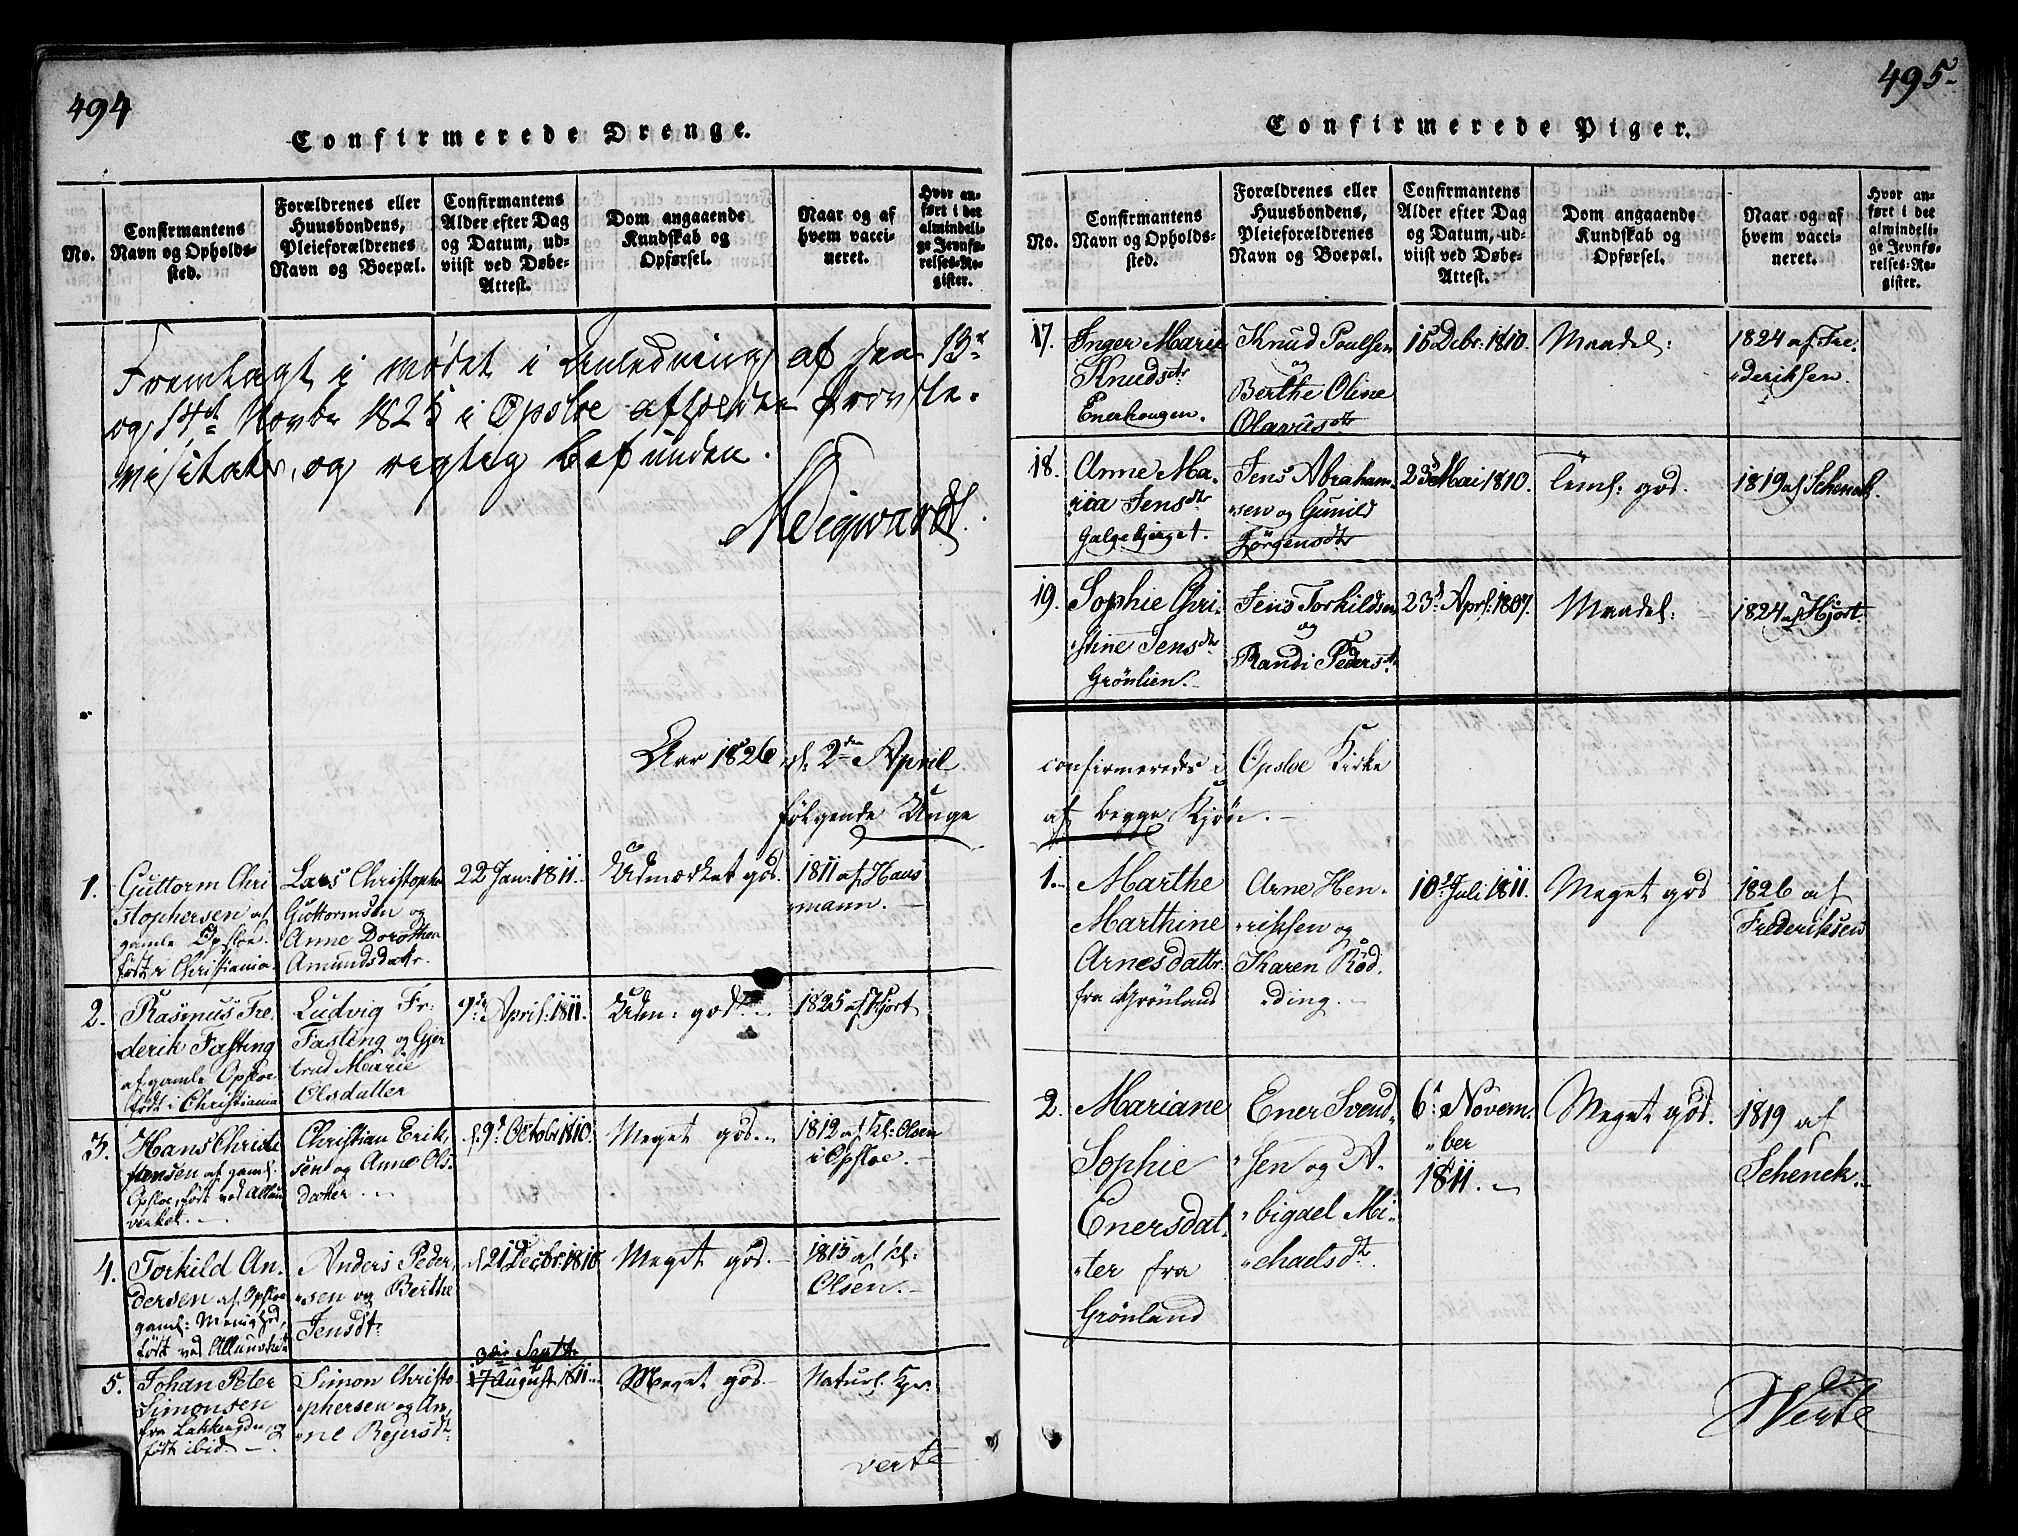 494
Confirmerede Drenge.
No.
Confirmantens
Navn og Opholds-
sted.
Forældrenes eller
Huusbondens,
Pleieforældrenes
Navn og Boepæl.
Confirmantens
Alder efter Dag
og Datum, ud-
viist ved Døbe-
Attest.
Dom angaaende
Kundskab og
Opførsel.
Naar og af
hvem vacci-
neret.
Hvor an-
ført i det
almindeli-
ge Jevnfø-
relses-Re-
gister.
Fremlagt i Mødet i Anledning af den 13de
og 14de Novbr 1825 i Opsloe afholdte Provste-
visitats, og rigtig befunden.
Aar 1826 d: 2den April
følgende Unge
1.
Guttorm Chri
stophersen af
gamle Opsloe.
født i Christiania.
Lars Christopher
Guttormsen og
Anne Dorothea
Amundsdatr.
22 Jan: 1811.
Udmærket god.
1811 af Haus
mann.
2.
Rasmus Fre-
derik Fasting
af gamle Opsloe
født i Christiania
Ludvig Fr:
Fasting og Gjer
trud Marie
Olsdatter
9de April: 1811.
Udm: god.
1825 af Hjort
3.
Hans Christi
stensen af gaml:
Opsloe, født ved Allun
verket.
Christian Erik,
sen og Anne Ols,
datter
d. 9de Octobr 1810.
Meget god.
1812 af Kl: Olsen
i Opsloe.
4.
Torkild An,
dersen af Opsloe
gaml: Menighed,
født ved Allunverket
Anders Peder,
sen og Berthe
Jensdtr
d 21 Decbr: 1810
Meget god.
1815 af kl:
Olsen.
5.
Johan Peter
Simonsen
fra Lakkegden, og
født ibid.
Simon Christo
phersen og An,
ne Rejersdtr
3die Septr
17 August 1811.
Meget god.
Naturl. Kpr.
verte
495
Confirmerede Piger.
No.
Confirmantens
Navn og Opholds-
sted.
Forældrenes eller
Huusbondens,
Pleieforældrenes
Navn og Boepæl.
Confirmantens
Alder efter Dag
og Datum, ud-
viist ved Døbe-
Attest.
Dom angaaende
Kundskab og
Opførsel.
Naar og af
hvem vacci-
neret.
Hvor an-
ført i det
almindeli-
ge Jevnfø-
relses-Re-
gister.
17.
Inger Marie
Knudsdtr
Enerhougen.
Knud Poulsen
og
Berthe Oline
Olavusdtr
15 Debr: 1810.
Maadel:
1824 af Fre-
deriksen.
18.
Anne Ma-
ria Jensdtr
Galgebjerget.
Jens Abraham-
sen og Gunild
Jörgensdtr
23d Mai 1810.
Teml: god.
1819 af Schenck.
19.
Sophie Chri-
stine Jensdtr
Grönlien.
Jens Torkildsen
og
Randi Pedersdtr
23d Apr: 1807.
Maadel:
1824 af Hjort.
confirmeredes i Opsloe Kirke
af begge Kjön.
1.
Marthe
Marthine
Arnesdattr.
fra Grönland
Arne Hen-
riksen og
Karen Röd,
ding.
10de Juli 1811.
Meget god
1826 af
Frederiksen
2.
Mariane
Sophie
Enersdat-
ter fra
Grönland
Ener Svend,
sen og A-
bigael Mi-
chaelsdtr
6te Novem-
ber
1811.
Meget god.
1819 af
Schenck.
Verte